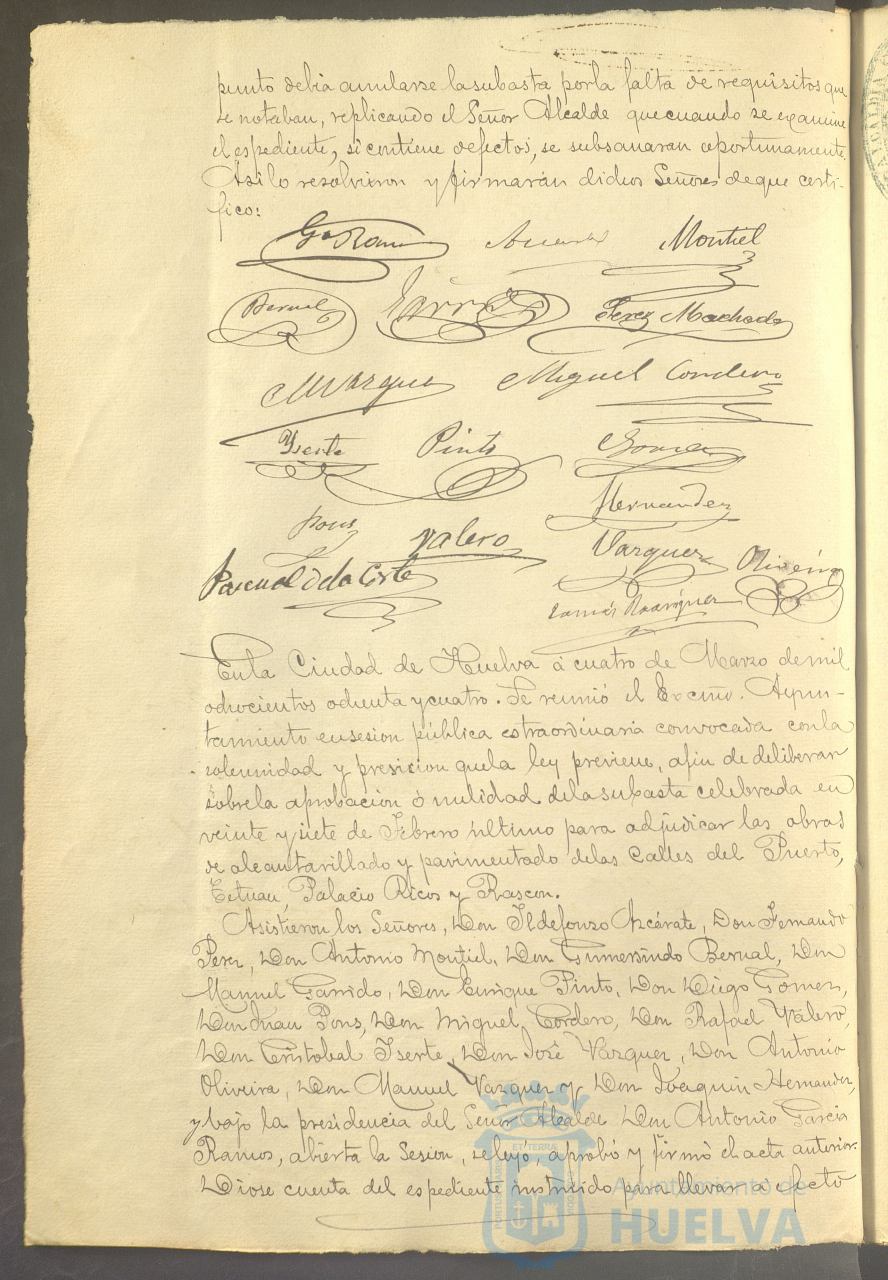 punto debia anularse la subasta por la falta de requisitos que
se notaban, replicando el Señor Alcalde que cuando se examine
el espediente, si contiene defectos, se subsanaran oportunamente.
Asi lo resolvieron y firmarán dichos Señores de que certi-
fico:
Ga Ramos Montiel
Bernal Garrido Perez Machado
M Vazquez Miguel Cordero
Yserte Pinto
Hernandez
Pons Valero Vazquez Oliveira
Pascual de la Corte
Tomás Rodriguez
En la Ciudad de Huelva á cuatro de Marzo de mil
ochocientos ochenta y cuatro. Se reunió el Excmo. Ayun-
tamiento en sesion pública estraordinaria convocada con la
solemnidad y presicion que la ley previene, afin de deliberar
sobre la aprobacion ó nulidad de la subasta celebrada en
veinte y siete de Febrero último para adjudicar las obras
de alcantarillado y pavimentado de las Calles del Puerto,
Tetuan, Palacio Ricos y Rascon.
Asistieron los Señores, Don Ildefonzo Azcárate, Don Fernando
Perez, Don Antonio Montiel, Don Gumersindo Bernal, Don
Manuel Garrido, Don Enrique Pinto, Don Diego Gomez,
Don Juan Pons, Don Miguel Cordero, Don Rafael Valero,
Don Cristobal Yserte, Don José Vazquez, Don Antonio
Oliveira, Don Manuel Vazquez y Don Joaquin Hernandez,
y bajo la presidencia del Señor Alcalde Don Antonio Garcia
Ramos, abierta la Sesion, se leyó aprobó y firmó el acta anterior.
Diose cuenta del espediente instruido para llevar a efecto
Ayuntamiento de
HUELVA